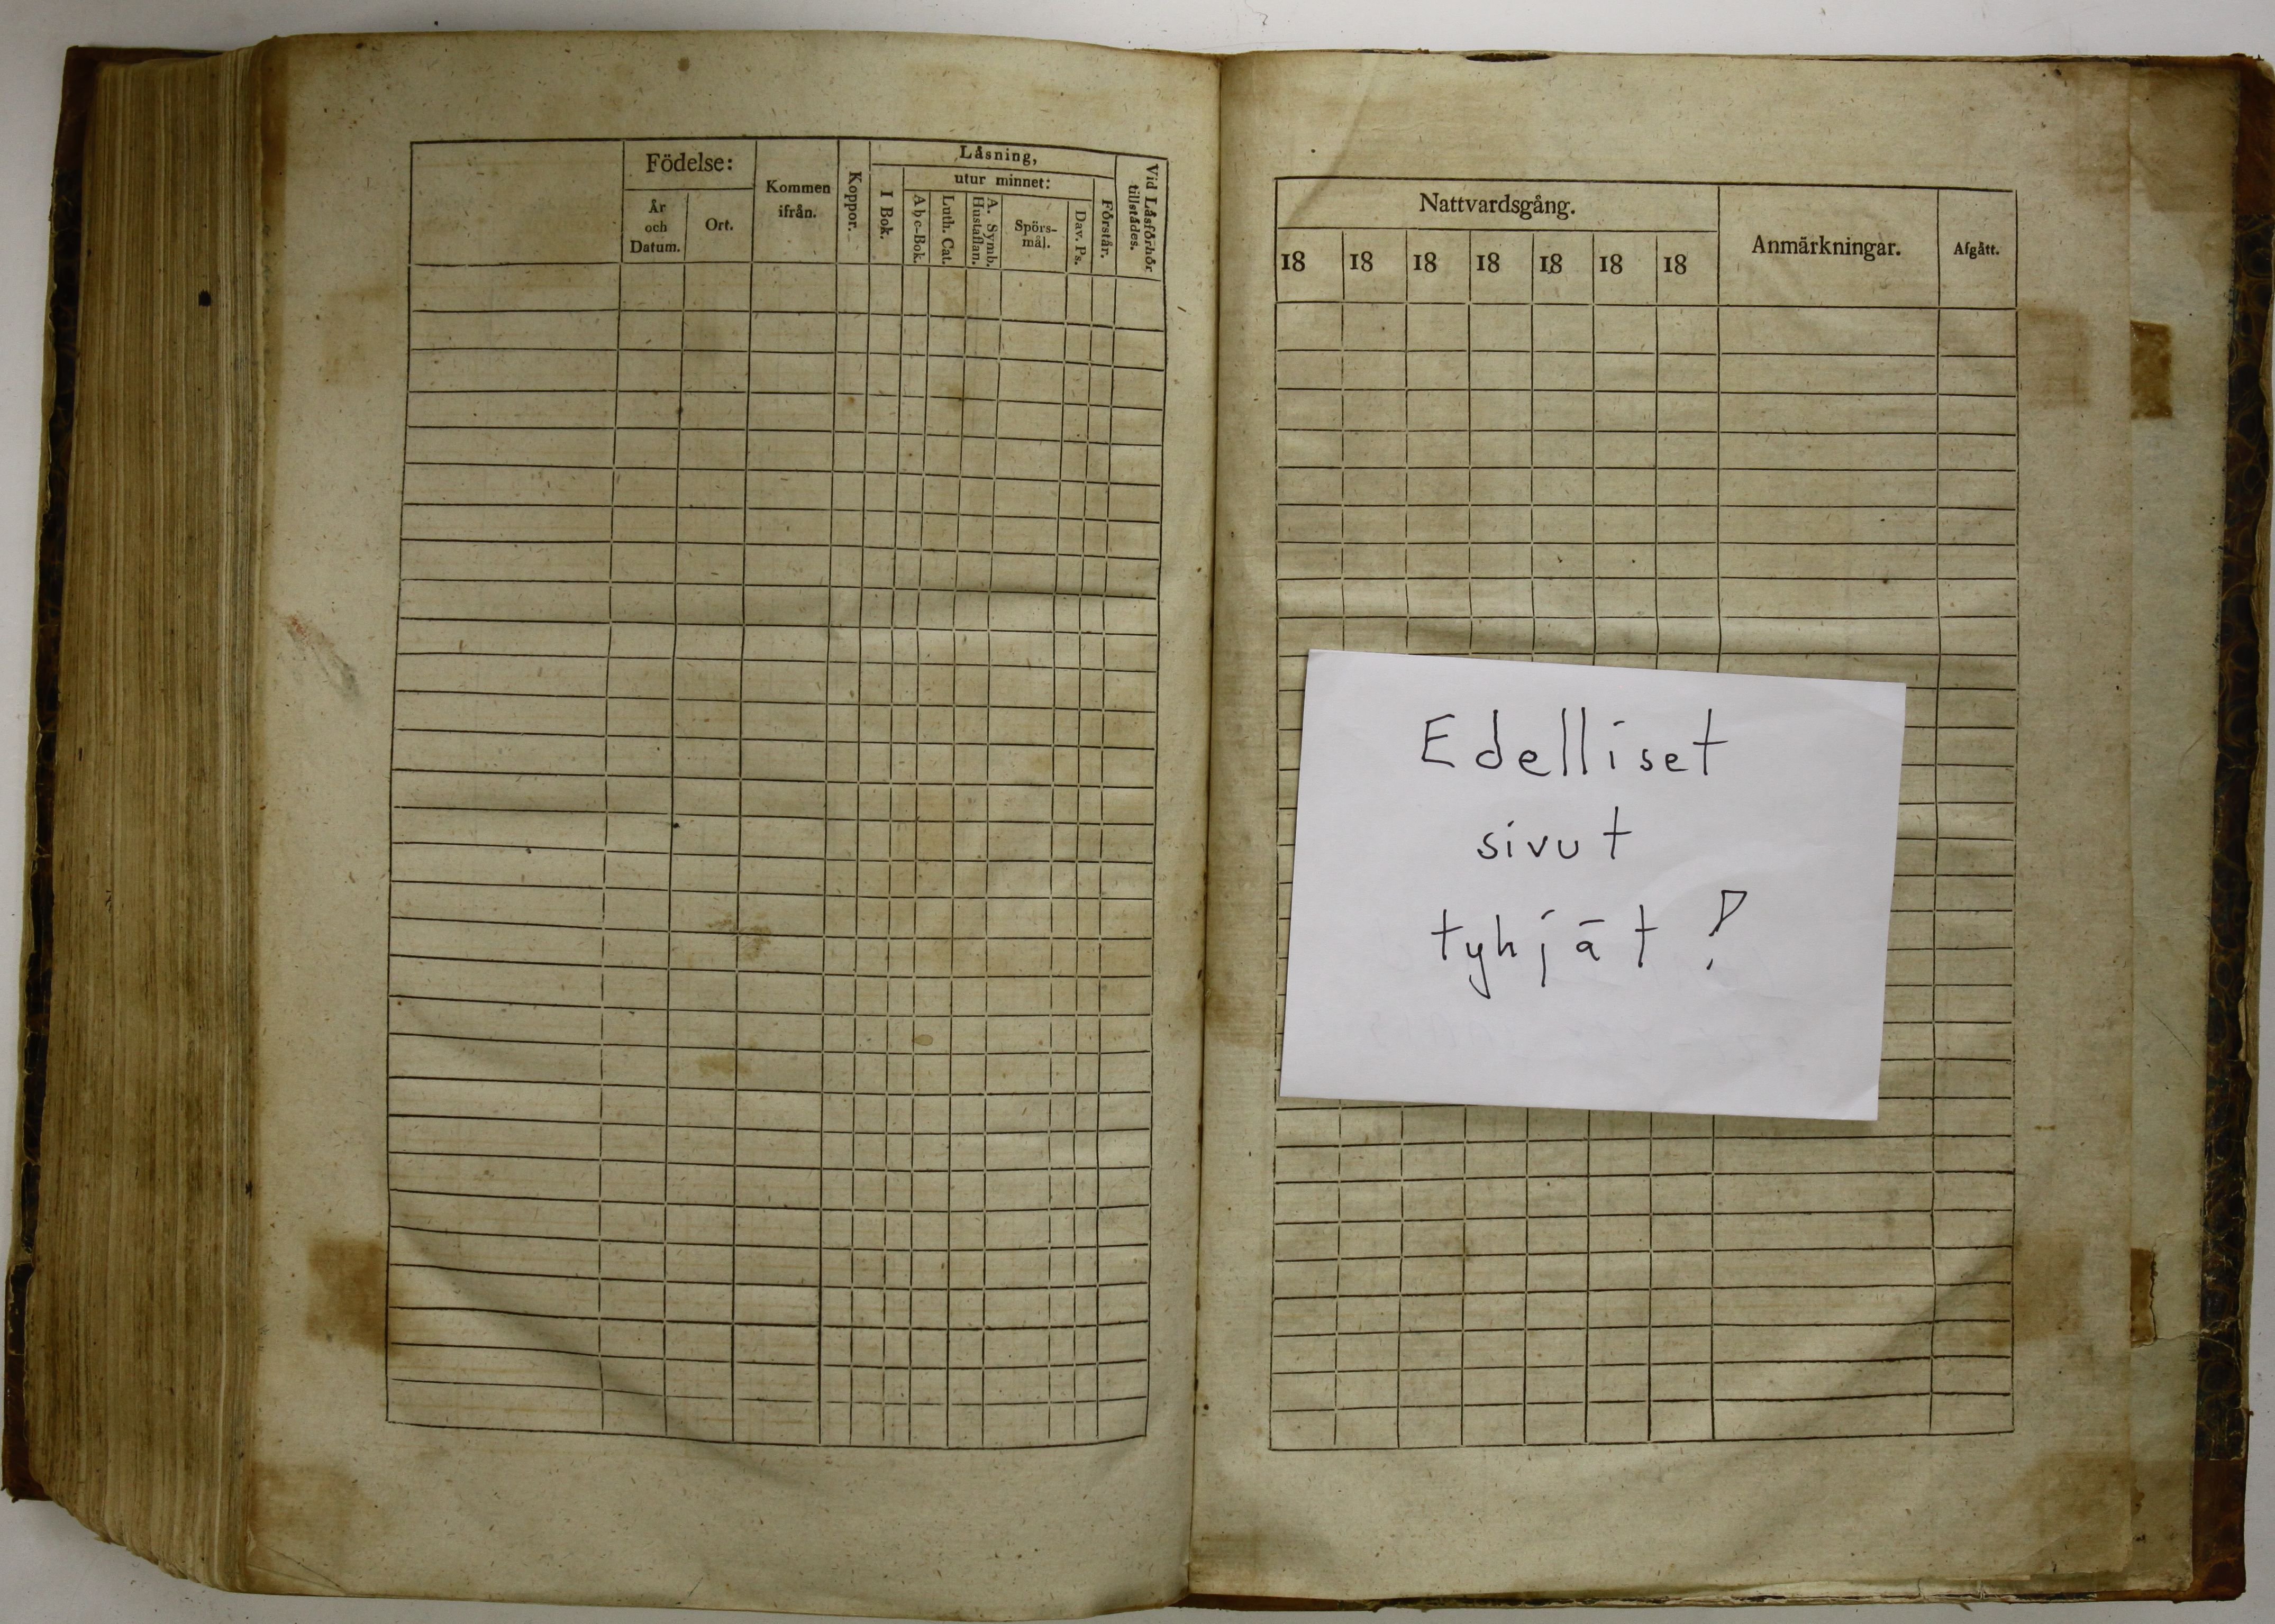 Födelse:
År
och
Datum.
Ort.
Kommen
ifrån.
Koppor.
Låsning,
I Bok.
utur minnet:
Abc-Bok.
Luth. Cat.
A. Symb.
Hustaflan.
Spörs-
mål.
Dav. Ps.
Förstår.
Vid Låsförhör
tillstådes.
Nattvardsgång.
18 18 18 18 18 18 18
Anmärkningar.
Afgått.
Edelliset
sivut
tyhjät!